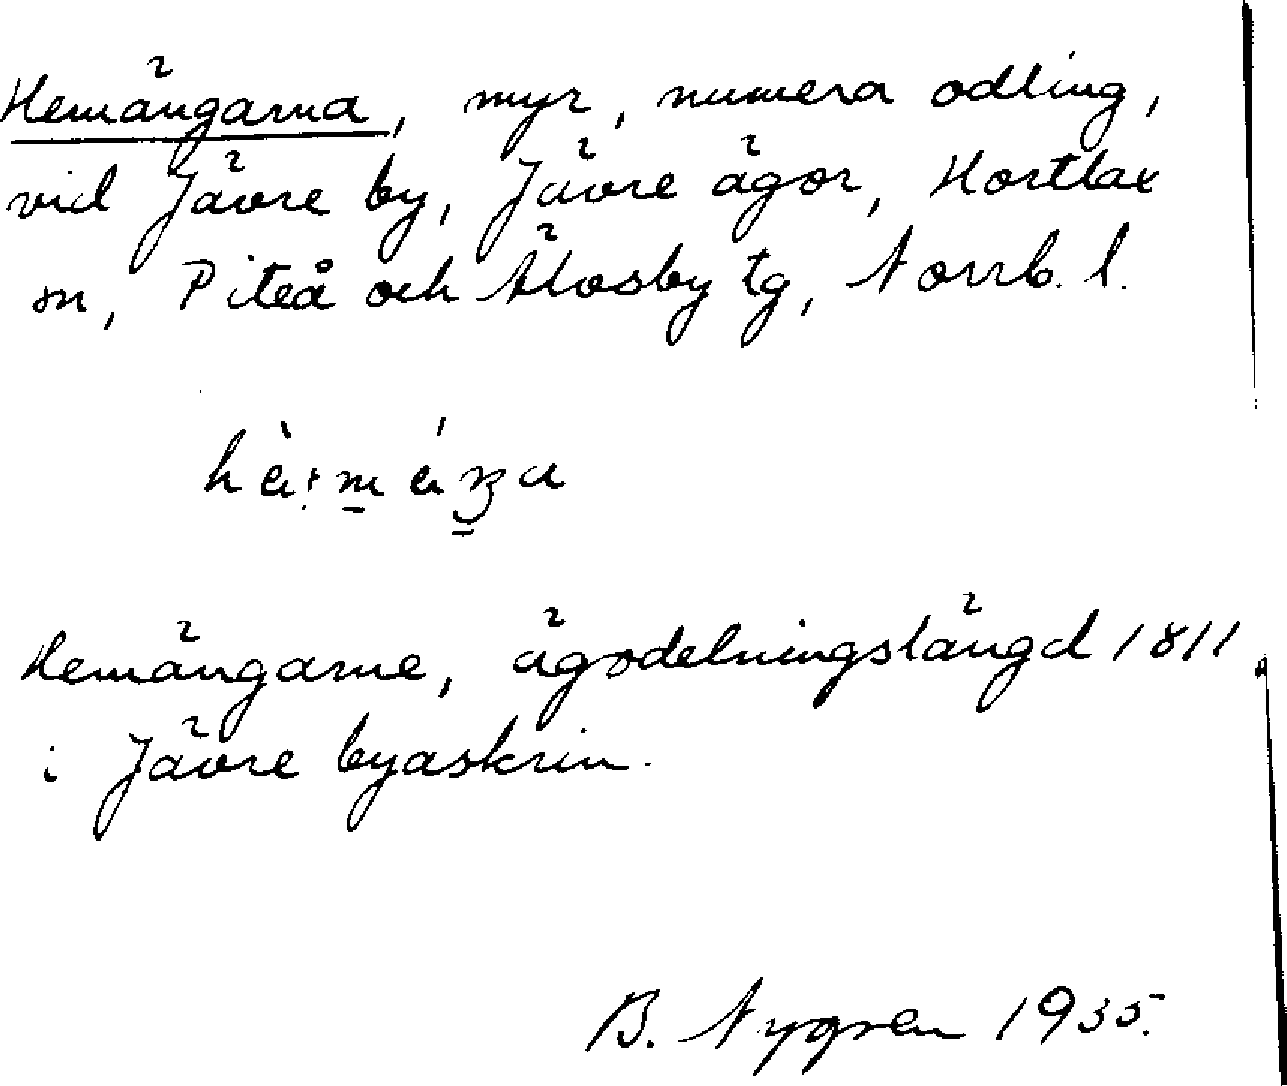 Hemängarna, myr, numera odling,
vid Jävre by, Jävre ägor, Hortlax
sn, Piteå och Älvsby tg, Norrb. l.
Hemängarne, ägodelningslängd 1811
i Jävre byaskrin.
B. Nygren 1935.